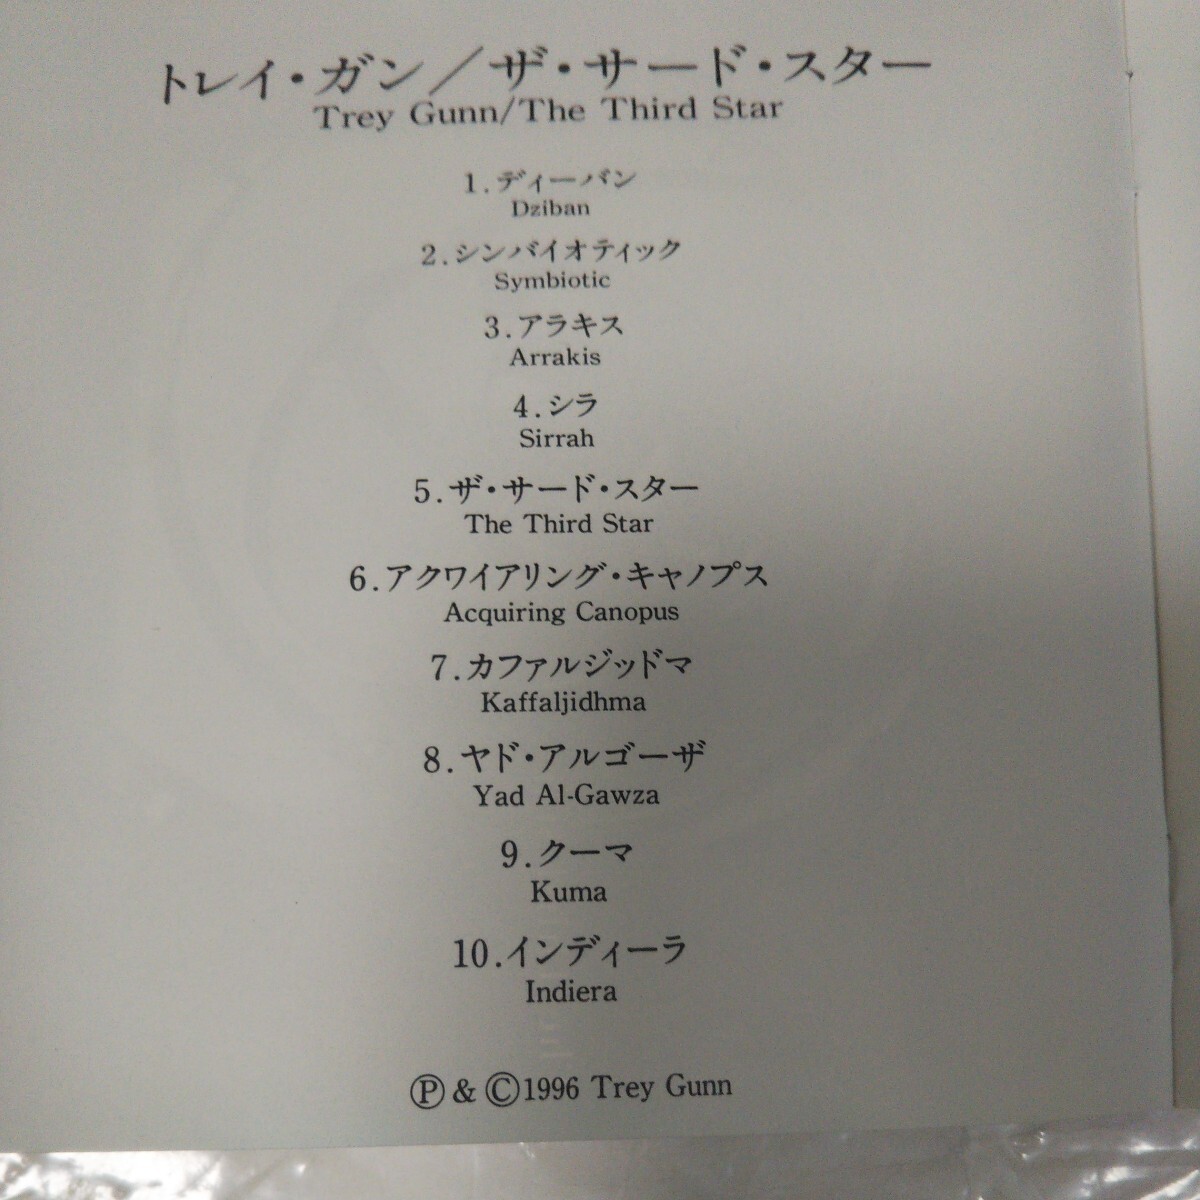 トレイ・ガン／ザ・サード・スター
Trey Gunn/The Third Star
1.ディーバン
Dziban
2.シンバイオティック
Symbiotic
3.アラキス
Arrakis
4.シラ
Sirrah
5.ザ・サード・スター
The Third Star
6.アクワイアリング・キャノプス
Acquiring Canopus
7.カファルジッドマ
Kaffaljidhma
8.ヤド・アルゴーザ
Yad Al-Gawza
9.クーマ
Kuma
10.インディーラ
Indiera
Ⓟ&Ⓒ1996 Trey Gunn